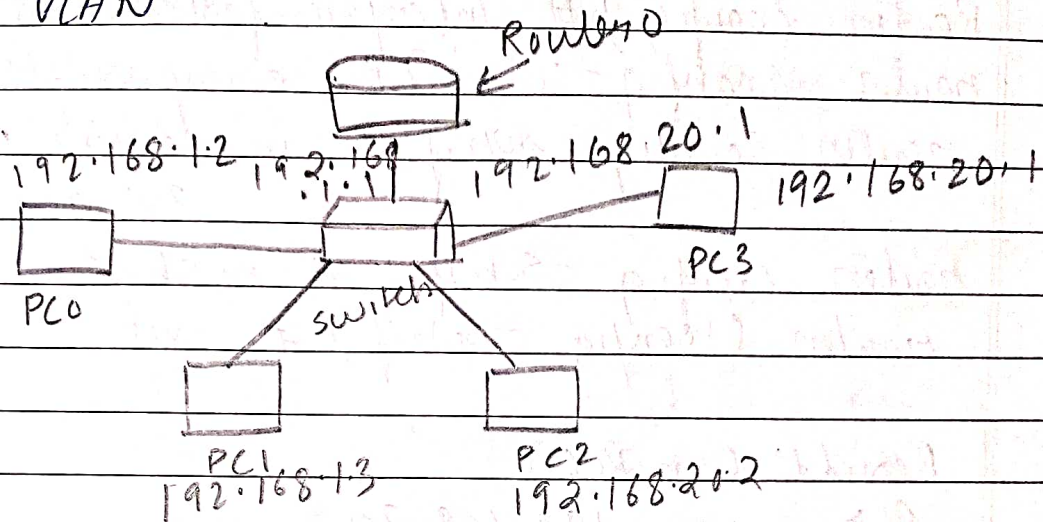 VLAN
Router0
192.168.1.2
192.168
.1.1
192.168.20.1
192.168.20.1
PC0
switch
PC3
PC1
192.168.1.3
PC2
192.168.20.2